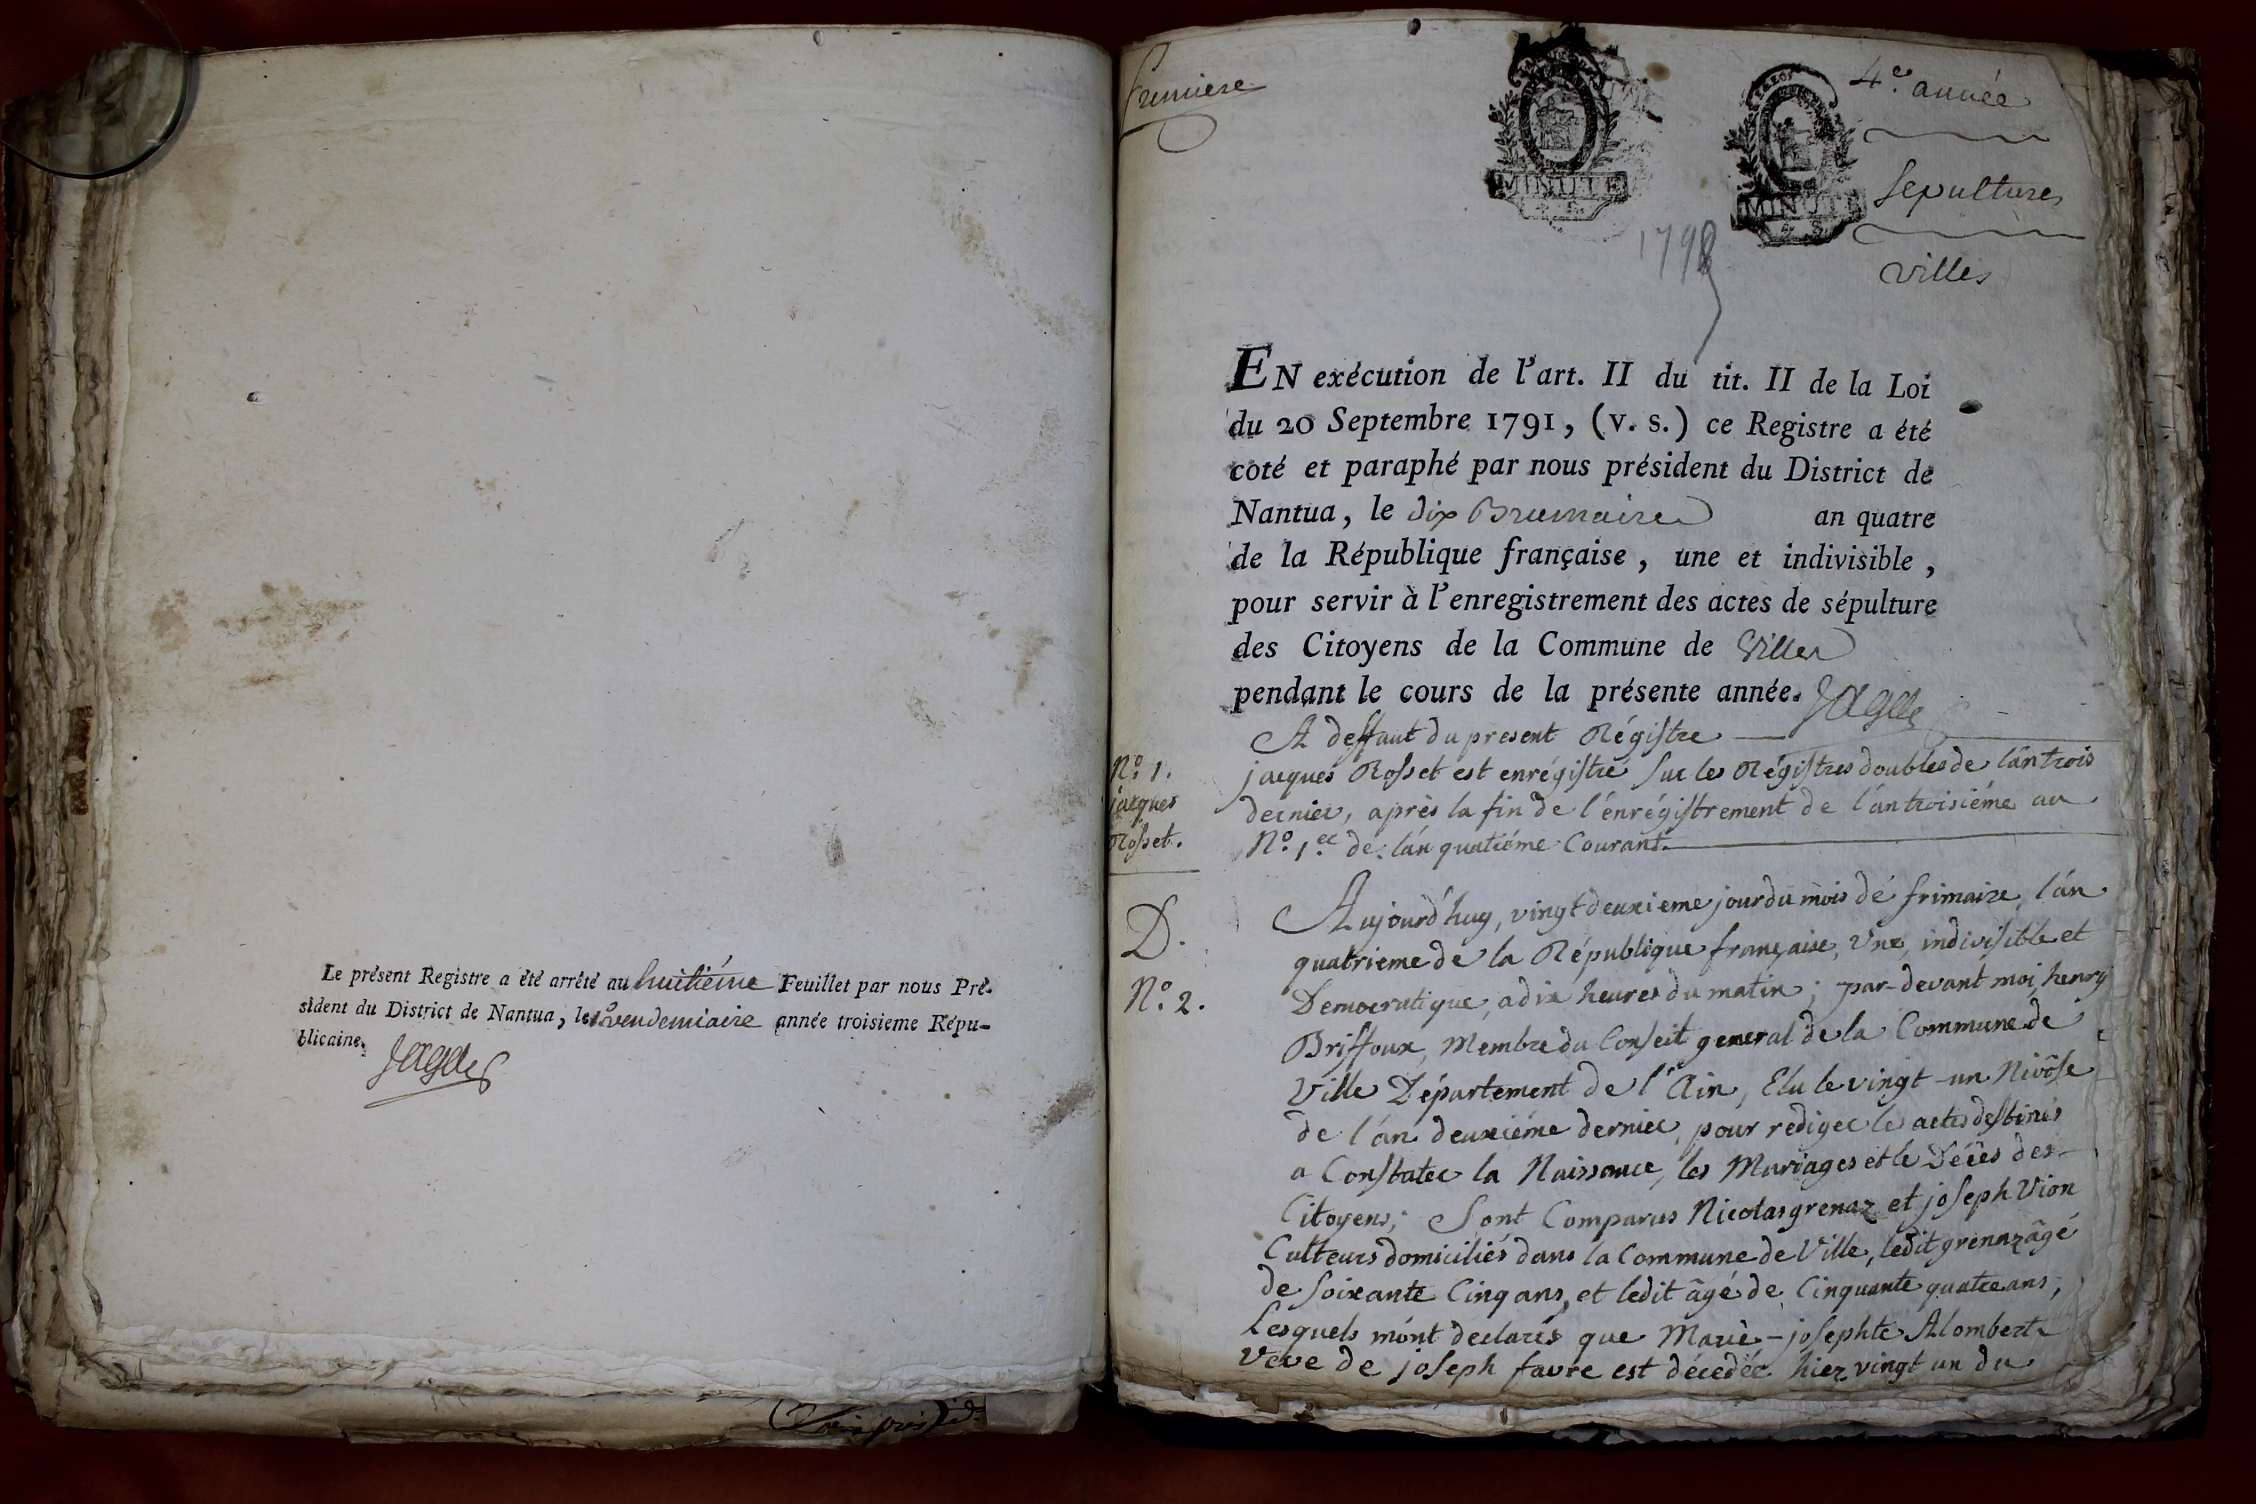 Le présent Registre a été arrêté au huitiéme Feuillet par nous Pré-
sident du District de Nantua, le vendemiaire année troisieme Répu-
blicaine.
Premiere
MINUTE
MINUTE
4 S.
4e. année
Sepultures
Villes
EN exécution de l'art. II du tit. II de la Loi
du 20 Septembre 1791, (v. s.) ce Registre a été
coté et paraphé par nous président du District de
Nantua, le dix Brumaire an quatre
de la République française, une et indivisible,
pour servir à l'enregistrement des actes de sépulture
des Citoyens de la Commune de Villes
pendant le cours de la présente année.
A deffaut du present Régistre
No. 1.
jacques
Rosset.
jacques Rosset est enrégistré sur les Régistres doubles de l'an trois
dernier, après la fin de l'énrégistrement de l'an troisiéme au
No. 1er de l'an quatiéme Courant.
D.
No. 2.
Aujourd'huy, vingt deuxieme jour du mois de frimaire, l'an
quatrieme de la République française, Une, indivisible et
Democratique, a dix heures du matin; par-devant moi, henry
Briffoux, Membre du Conseil general de la Commune de
Ville Département de l'Ain, Elu le vingt-un Nivôse
de l'an deuxiéme dernier, pour rediger les actes destinés
a Constater la Naissance, les Mariages et le Décès des
Citoyens; Sont Comparus Nicolas grenaz et joseph Vion
Culteurs domiciliés dans la Commune de Ville, ledit grenaz âgé
de soixante Cinq ans, et ledit âgé de Cinquante quatre ans;
Lesquels m'ont declarés que Marie-josephte Alombert
Veve de joseph favre est décedée hier vingt un du